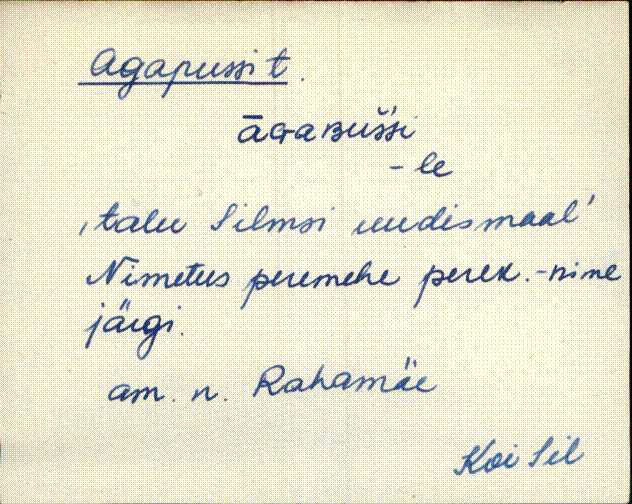 Agapussi t.
āGaBušši
- le
'talu Silmsi uudismaal'
Nimetus peremehe perek.-nime
järgi.
am. n. Rahamäe
Koi Sil